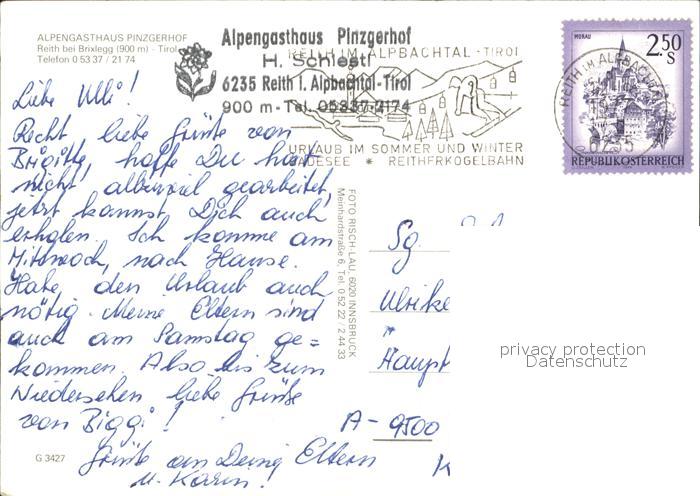 ALPENGASTHAUS PINZGERHOF
Reith bei Brixlegg (900 m) - Tirol
Telefon 0 53 37 / 21 74
Alpengasthaus Pinzgerhof
H. Schiestl
6235 Reith i. Alpbachtal-Tirol
900 m - Tel. 05337/2174
REITH IM ALPBACHTAL · TIROL
URLAUB IM SOMMER UND WINTER
BADESEE * REITHERKOGELBAHN
REITH IM ALPBACHTAL
6235
MURAU
2.50
S
REPUBLIK ÖSTERREICH
Liebe Ulli!
Recht liebe Grüße von
Brigitte, hoffe Du hast
nicht allzuviel gearbeitet,
jetzt kannst Dich auch
erholen. Ich komme am
Mittwoch, nach Hause.
Habe den Urlaub auch
nötig. Meine Eltern sind
auch am Samstag ge=
kommen. Also bis zum
Wiedersehen liebe Grüße
von Biggi!
Grüße an Deine Eltern
u. Karin!
G 3427
FOTO RISCH-LAU, 6020 INNSBRUCK
Meinhardstraße 6, Tel. 0 52 22 / 2 44 33
Sg.
Ulrike
Haupt
A - 9500
privacy protection
Datenschutz